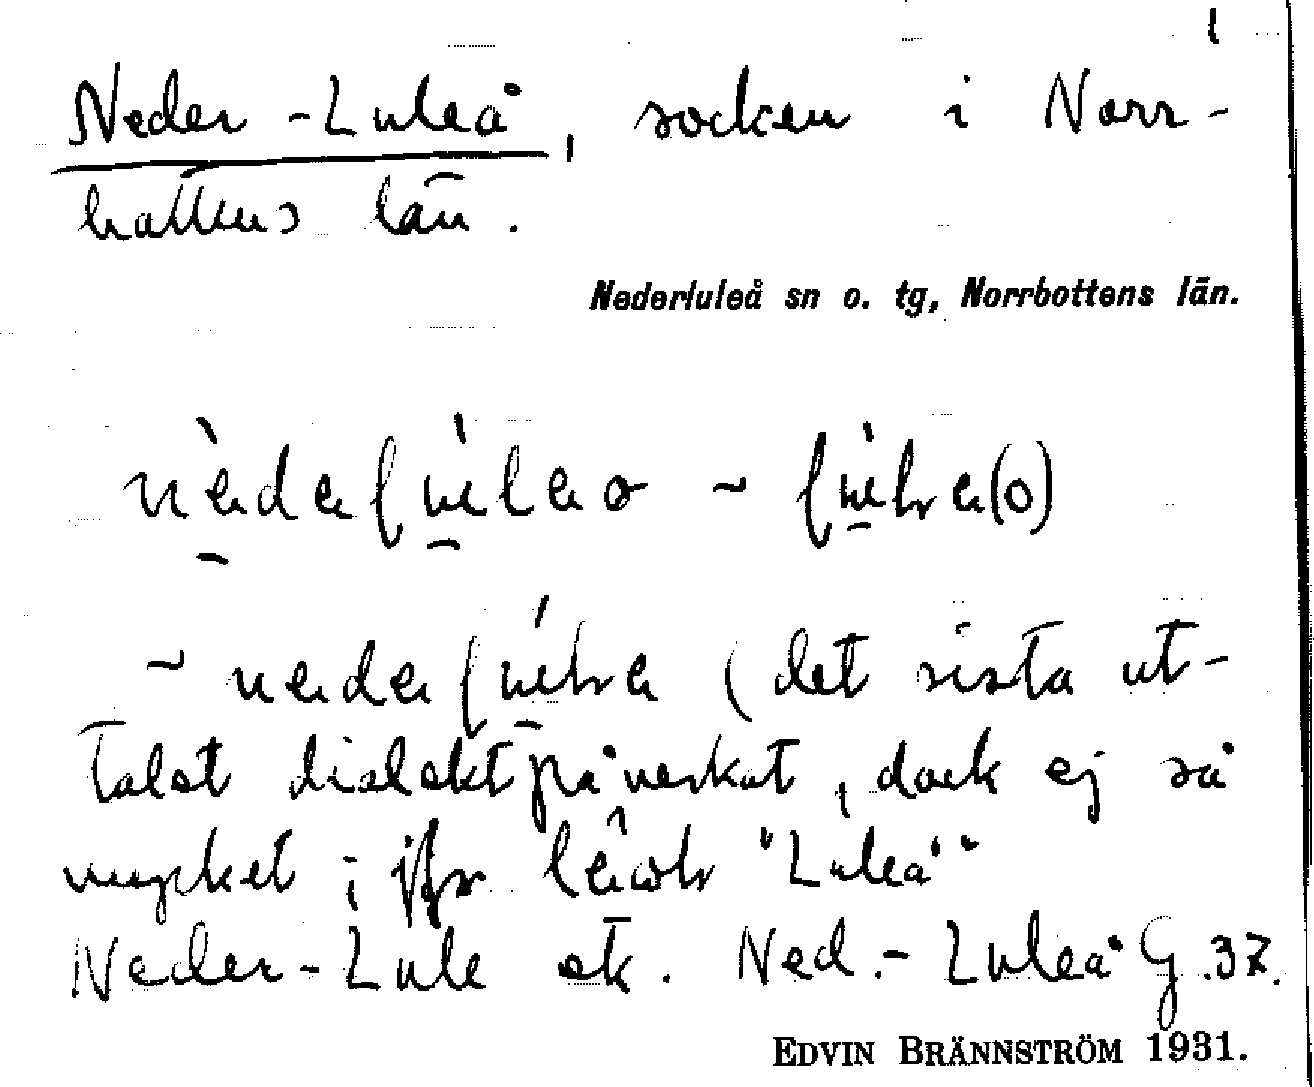 Neder-Luleå, socken i Norr-
bottens län.
Nederluleå sn o. tg, Norrbottens län.
~
(det sista ut-
talet dialektpåverkat, dock ej så
mycket; jfr "Luleå"
Neder-Lule ek. Ned.-Luleå G. 37.
EDVIN BRÄNNSTRÖM 1931.